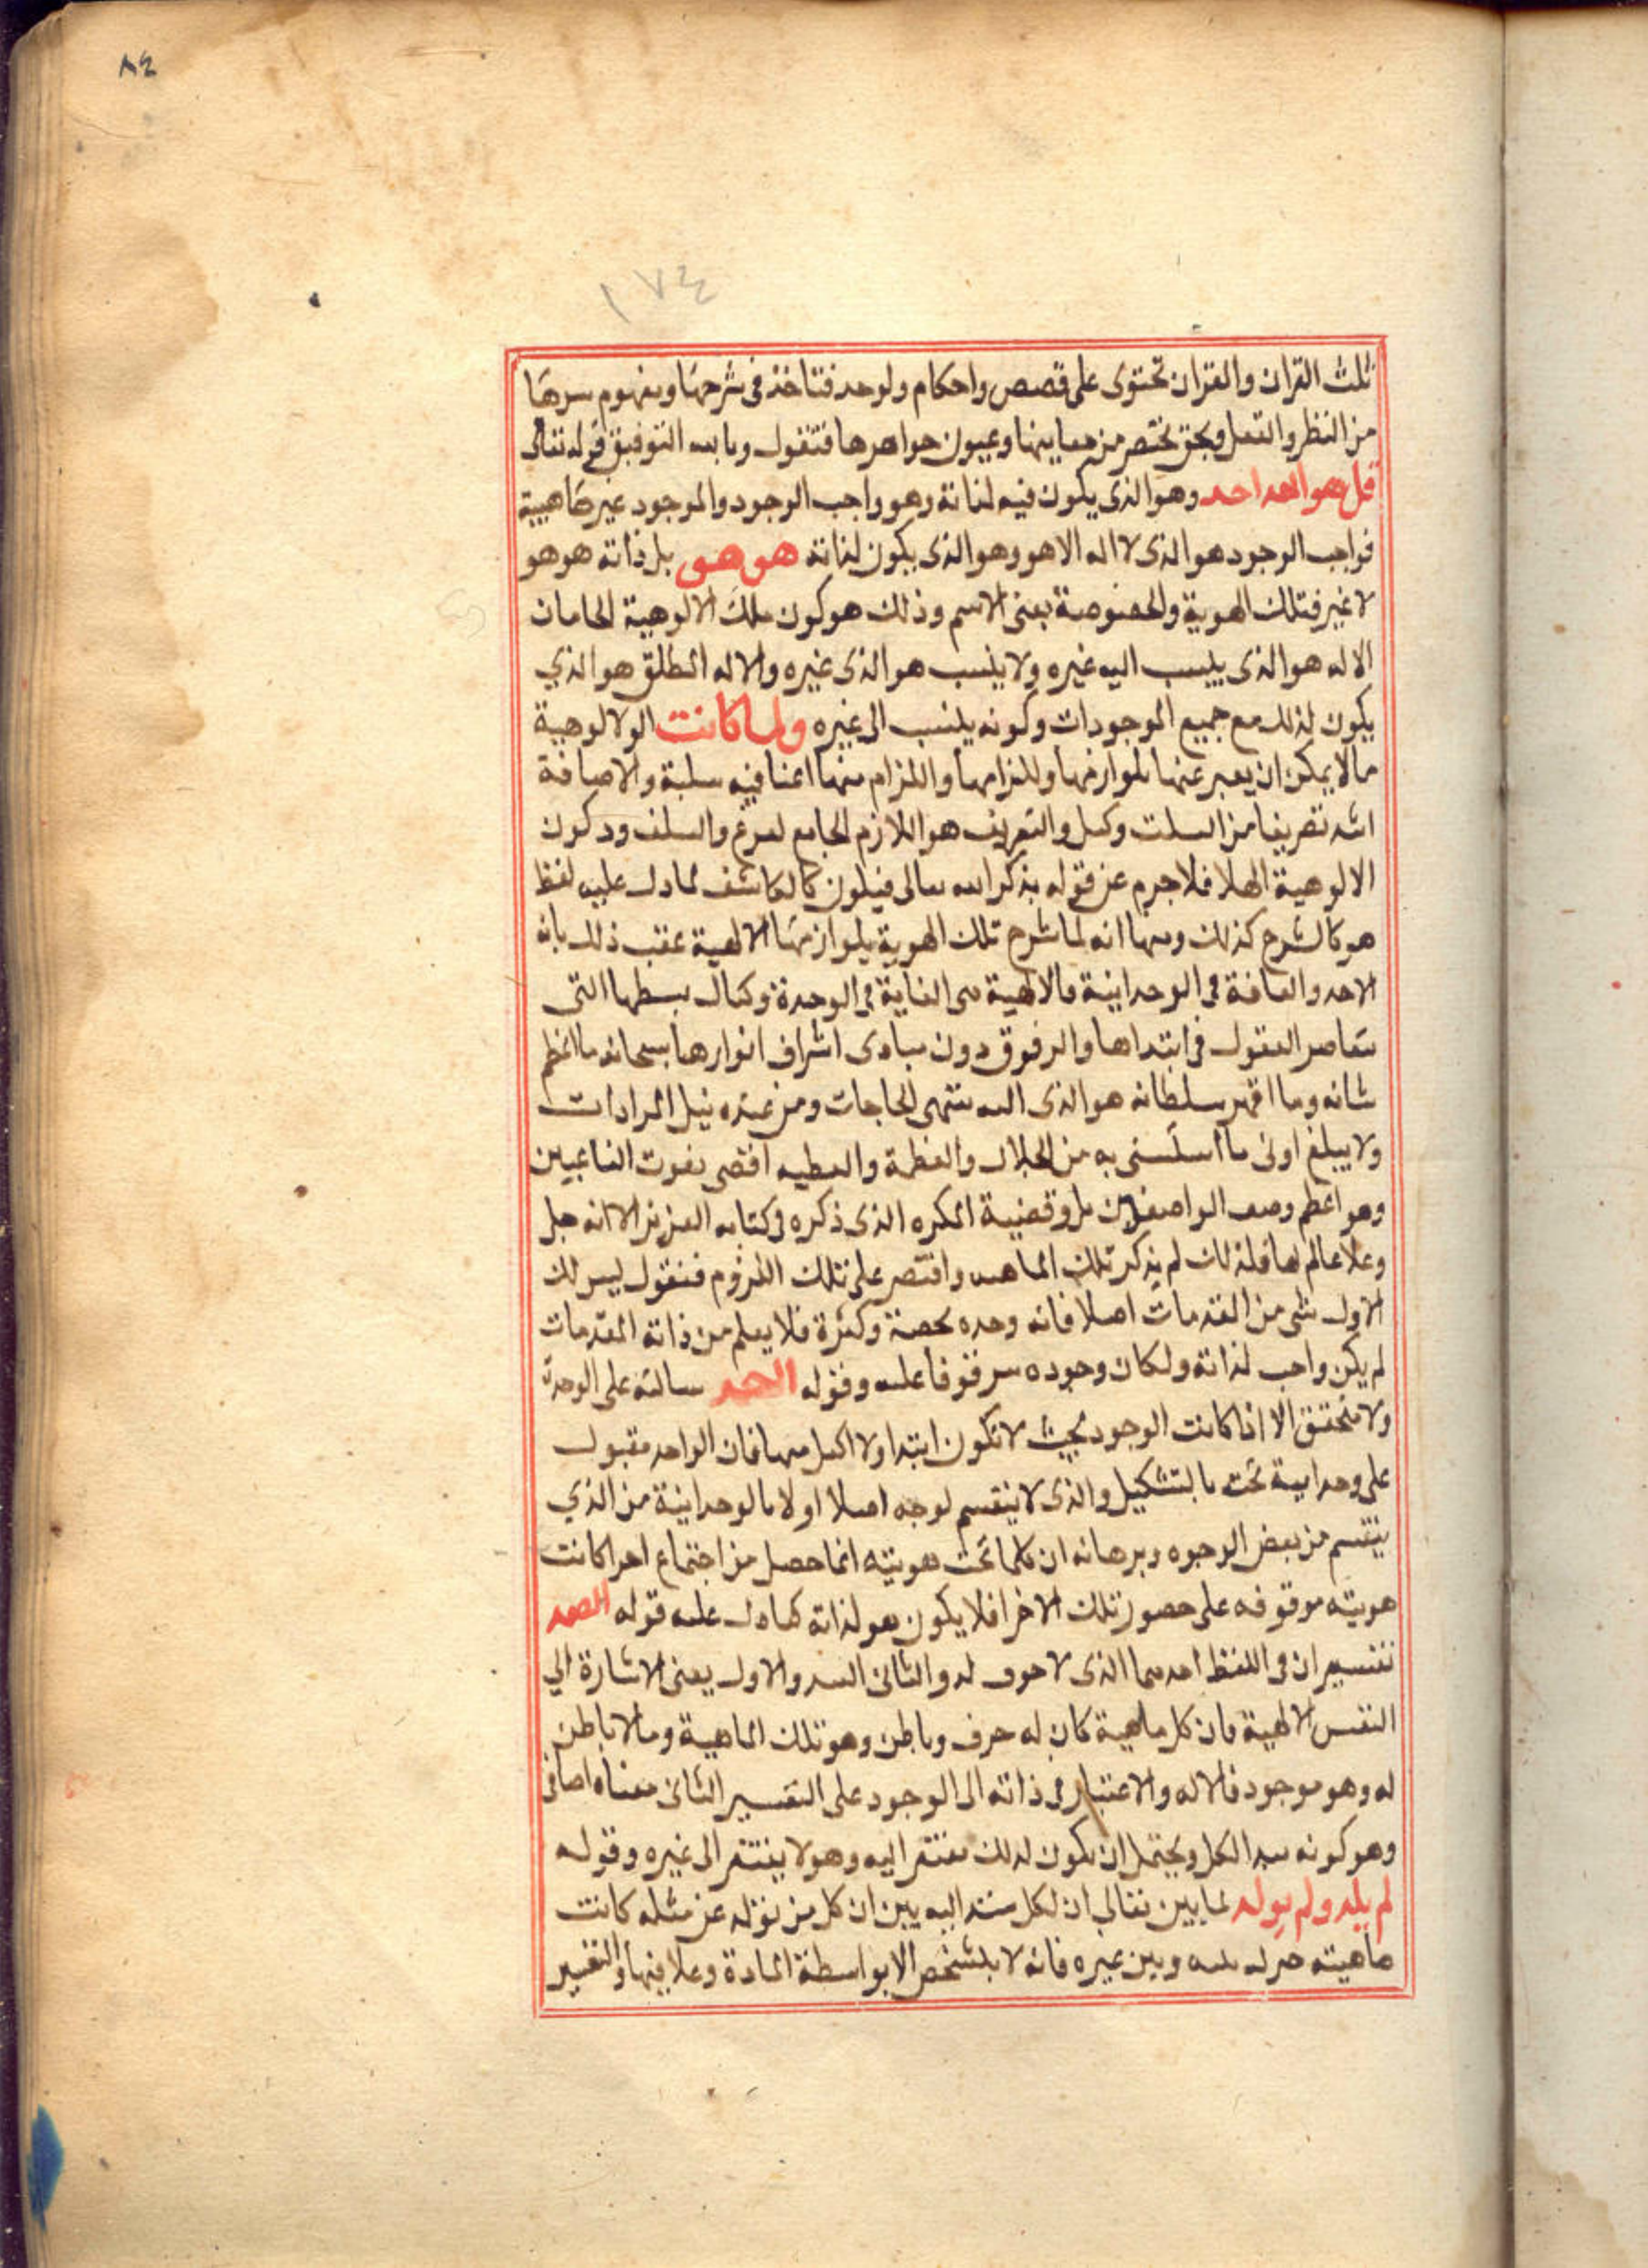 ٨٤
١٧٤
ثلث القران والقران تحتوى على قصص واحكام ولوحد فتاخذ فى شرحها ومفهوم سرها
من النظر والتعل وبحق نختصر من معاينها وعيون جواهرها فتقول وبابه التوفيق قوله تعالى
قل هو الله احد وهو الذى يكون فيه لذاته وهو واجب الوجود والموجود غير ماهيية
فواجب الوجود هو الذى لا اله الا هو وهو الذى يكون لذاته هو هو بل ذاته هو هو
لا غير فتلك الهوية والخصوصة بعنى الاسم وذلك هو كون ملك الالوهية الخامات
الاله هو الذى ينسب اليه غيره ولا ينسب هو الذى غيره والاله المطلق هو الذي
يكون لذلك مع جميع الموجودات وكونه ينسب الى غيره ولما كانت الولالوهية
مما لا يمكن ان يعبر عنها بلوازمها وللزامها واللزام منها اعنافيه سلبة والاضافة
اشد تعريفا من السلت وكل والتعريف هو اللازم الجامع لفرع والسلف ود كون
الالوهية الهلا فلاجرم عن قوله بذكر الله تعالى فيلون كالكاشف لما دل عليه لفظ
هو كالشرح كذلك ومنها انه لما شرح تلك الهوية بلوازمها الالهية عقب ذلك بانه
الاحد والغافة فى الوحدانية فالالهية هى الغاية فى الوحدة وكمال بسطها التى
تتعاصر العقول فى ابتداها والرفوق دون مبادى اشراف انوارها سبحانه ما اعظم
شانه وما اقهر سلطانه هو الذى اليه منتهى الحاجات ومن عنده نيل المرادات
ولا يبلغ اونى ما استسنى به من الجلال والعظمة والعطيه اقصى نعوت الناعيين
وهو اعظم وصف الواصفين بل وقضية المكره الذى ذكره فى كتابه العزيز الا انه جل
وعلا عالم لها فلذلك لم يذكر تلك الماهيه واقتصر على تلك اللزوم فنقول ليس لك
الاول شى من المقدمات اصلا فانه وحده محضة وكثرة فلا يعلم من ذاته المقدمات
لم يكن واجب لذاته ولكان وجوده سرقوفا عليه وقوله احد سالته على الوحدة
ولا يتحقق الا اذا كانت الوجود بحيث لا تكون ابتدا ولا اكمل منها فان الواحد مقبول
على وحدانية تحت ما بالتشكيل والذى لا ينقسم لوجه اصلا اولا بالوحدانية من الذي
ينقسم من بعض الوجوه وبرهانه ان كلما تحت هويته انما حصل من اجتماع اجزا كانت
هويته موقوفه على حصور تلك الاخرا فلا يكون هو لذاته كما دل عليه قوله الصمد
تفسيران فى اللفظ احدهما الذى لا جوف له والثانى السد والاول يعنى الاشارة الي
النفس الالهية فان كل ماهية كان له حرف وباطن وهو تلك الماهية وما لا باطن
له وهو موجود فالاله والاعتبار فى ذاته الى الوجود على التفسير الثانى معناه اضافى
وهو كونه سيد الكل ويحتمل ان يكون لدلك مفتقر اليه وهو لا يفتقر الى غيره وقوله
لم يلد ولم يولد لما بين تعالى ان لكل مستند اليه يبين ان كل من نزله عن مثله كانت
ماهيته بينه وبين غيره فانه لا يتشخص الا بواسطة المادة وعلاقتها والتفسير